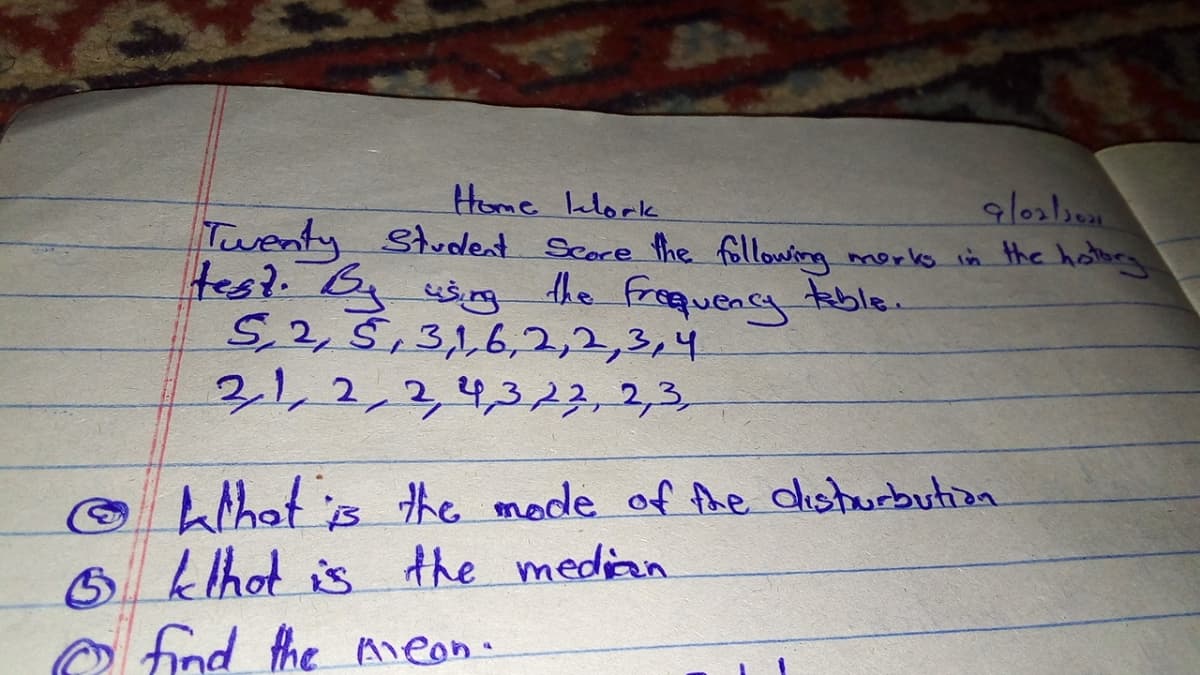 Home Work
9/02/2021
Twenty Student Score the following marks in the
test. By using the freequency table.
5, 2, 5, 3, 1, 6, 2, 2, 3, 4
2, 1, 2, 2, 4, 3, 22, 2, 3,
What is the mode of the disturbution
What is the median
find the mean.